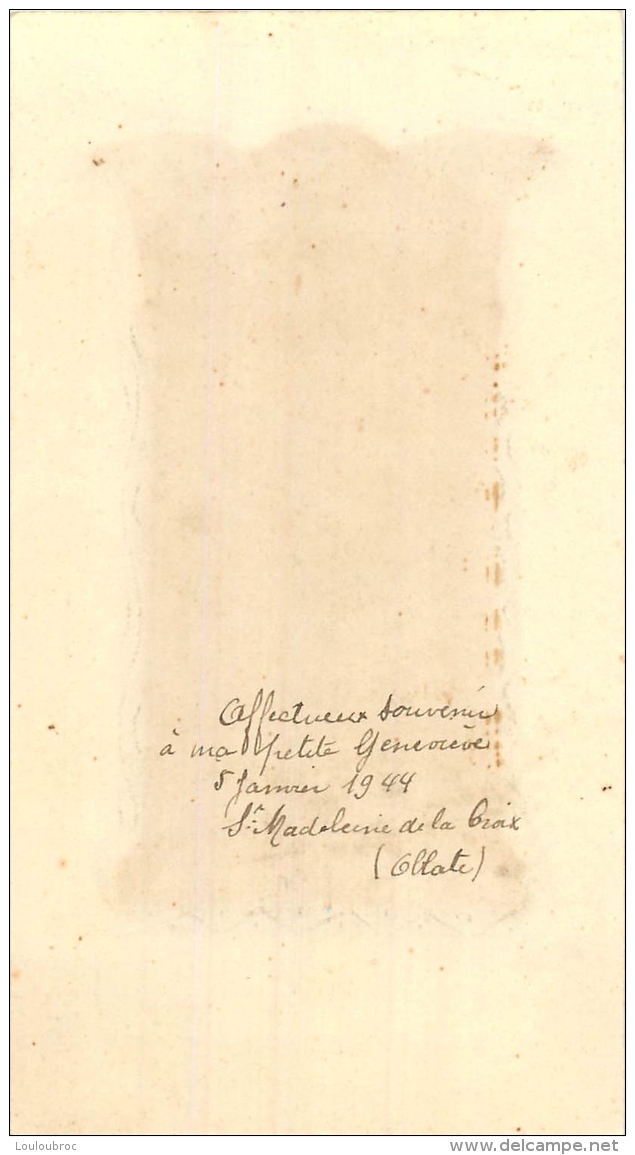 Affectueux souvenir
à ma petite Geneviève
5 Janvier 1944
Sr Madeleine de la Croix
(Oblate)
Louloubroc
delcampe.net